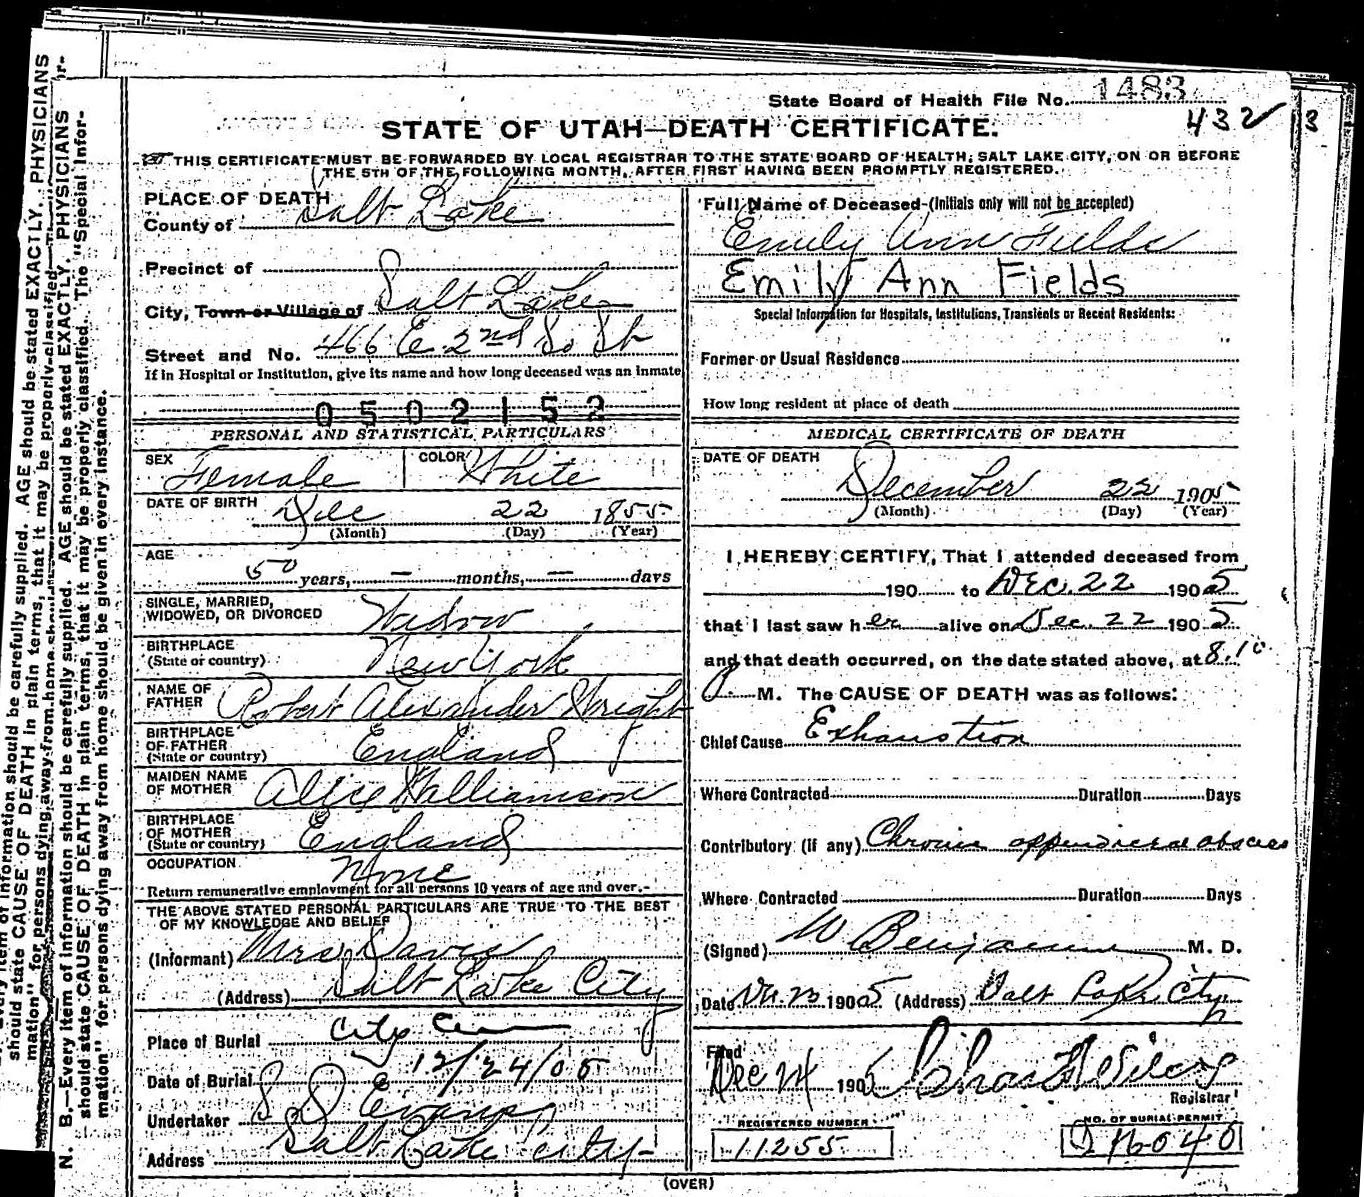 State Board of Health File No. 1483
432 ✓ 3
STATE OF UTAH—DEATH CERTIFICATE.
THIS CERTIFICATE MUST BE FORWARDED BY LOCAL REGISTRAR TO THE STATE BOARD OF HEALTH, SALT LAKE CITY, ON OR BEFORE
THE 5TH OF THE FOLLOWING MONTH, AFTER FIRST HAVING BEEN PROMPTLY REGISTERED.
PLACE OF DEATH
County of Salt Lake
Precinct of
City, Town or Village of Salt Lake
Street and No. 466 E. 2nd So St
If in Hospital or Institution, give its name and how long deceased was an inmate
0502152
PERSONAL AND STATISTICAL PARTICULARS
SEX Female COLOR White
DATE OF BIRTH Dec 22 1855
(Month) (Day) (Year)
AGE
50 years, — months, — days
SINGLE, MARRIED,
WIDOWED, OR DIVORCED Widow
BIRTHPLACE
(State or country) New York
NAME OF
FATHER Robert Alexander Wright
BIRTHPLACE
OF FATHER
(State or country) England
MAIDEN NAME
OF MOTHER Allice Walliamson
BIRTHPLACE
OF MOTHER
(State or country) England
OCCUPATION None
Return remunerative employment for all persons 10 years of age and over.
THE ABOVE STATED PERSONAL PARTICULARS ARE TRUE TO THE BEST
OF MY KNOWLEDGE AND BELIEF
(Informant) Mrs Davis
(Address) Salt Lake City
Place of Burial City Cem
Date of Burial 12/24/05
Undertaker S D Evans
Address Salt Lake City
Full Name of Deceased (Initials only will not be accepted)
Emily Ann Fields
Emily Ann Fields
Special Information for Hospitals, Institutions, Transients or Recent Residents:
Former or Usual Residence
How long resident at place of death
MEDICAL CERTIFICATE OF DEATH
DATE OF DEATH
December 22 1905
(Month) (Day) (Year)
I HEREBY CERTIFY, That I attended deceased from
190 to Dec. 22 1905
that I last saw her alive on Dec. 22 1905
and that death occurred, on the date stated above, at 8.10
M. The CAUSE OF DEATH was as follows:
Chief Cause Exhaustion
Where Contracted Duration Days
Contributory (if any) Chronic appendiceal abscess
Where Contracted Duration Days
(Signed) W Benjamin M. D.
Date 1905 (Address) Salt Lake City
Filed
Dec 24 1905 Chas Wilcox
Registrar
REGISTERED NUMBER
11255
NO. OF BURIAL PERMIT
(OVER)
N. B.—Every item of information should be carefully supplied. AGE should be stated EXACTLY. PHYSICIANS
should state CAUSE OF DEATH in plain terms, that it may be properly classified. The "Special Infor-
mation" for persons dying away from home should be given in every instance.